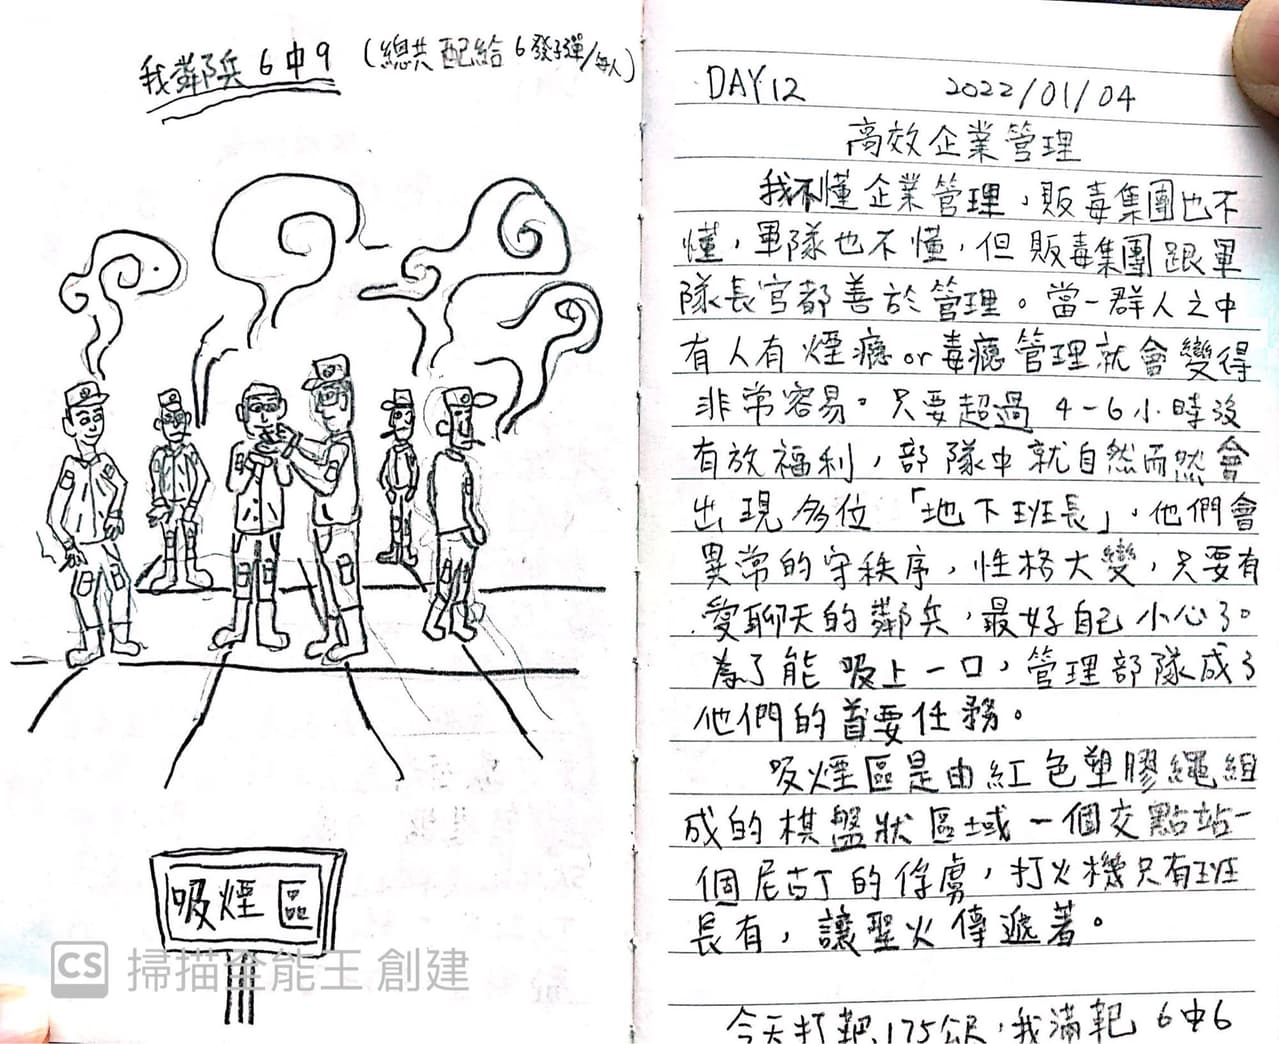 我鄰兵6中9 (總共配給6發子彈/每人)
吸煙區
CS 掃描全能王 創建
DAY 12 2022/01/04
高效企業管理
我不懂企業管理，販毒集團也不
懂，軍隊也不懂，但販毒集團跟軍
隊長官都善於管理。當一群人之中
有人有煙癮or毒癮管理就會變得
非常容易。只要超過4-6小時沒
有放福利，部隊中就自然而然會
出現多位「地下班長」，他們會
異常的守秩序，性格大變，只要有
愛聊天的鄰兵，最好自己小心了。
為了能吸上一口，管理部隊成了
他們的首要任務。
吸煙區是由紅色塑膠繩組
成的棋盤狀區域一個交點站一
個尼古丁的俘虜，打火機只有班
長有，讓聖火傳遞著。
今天打靶，175公尺，我滿靶6中6